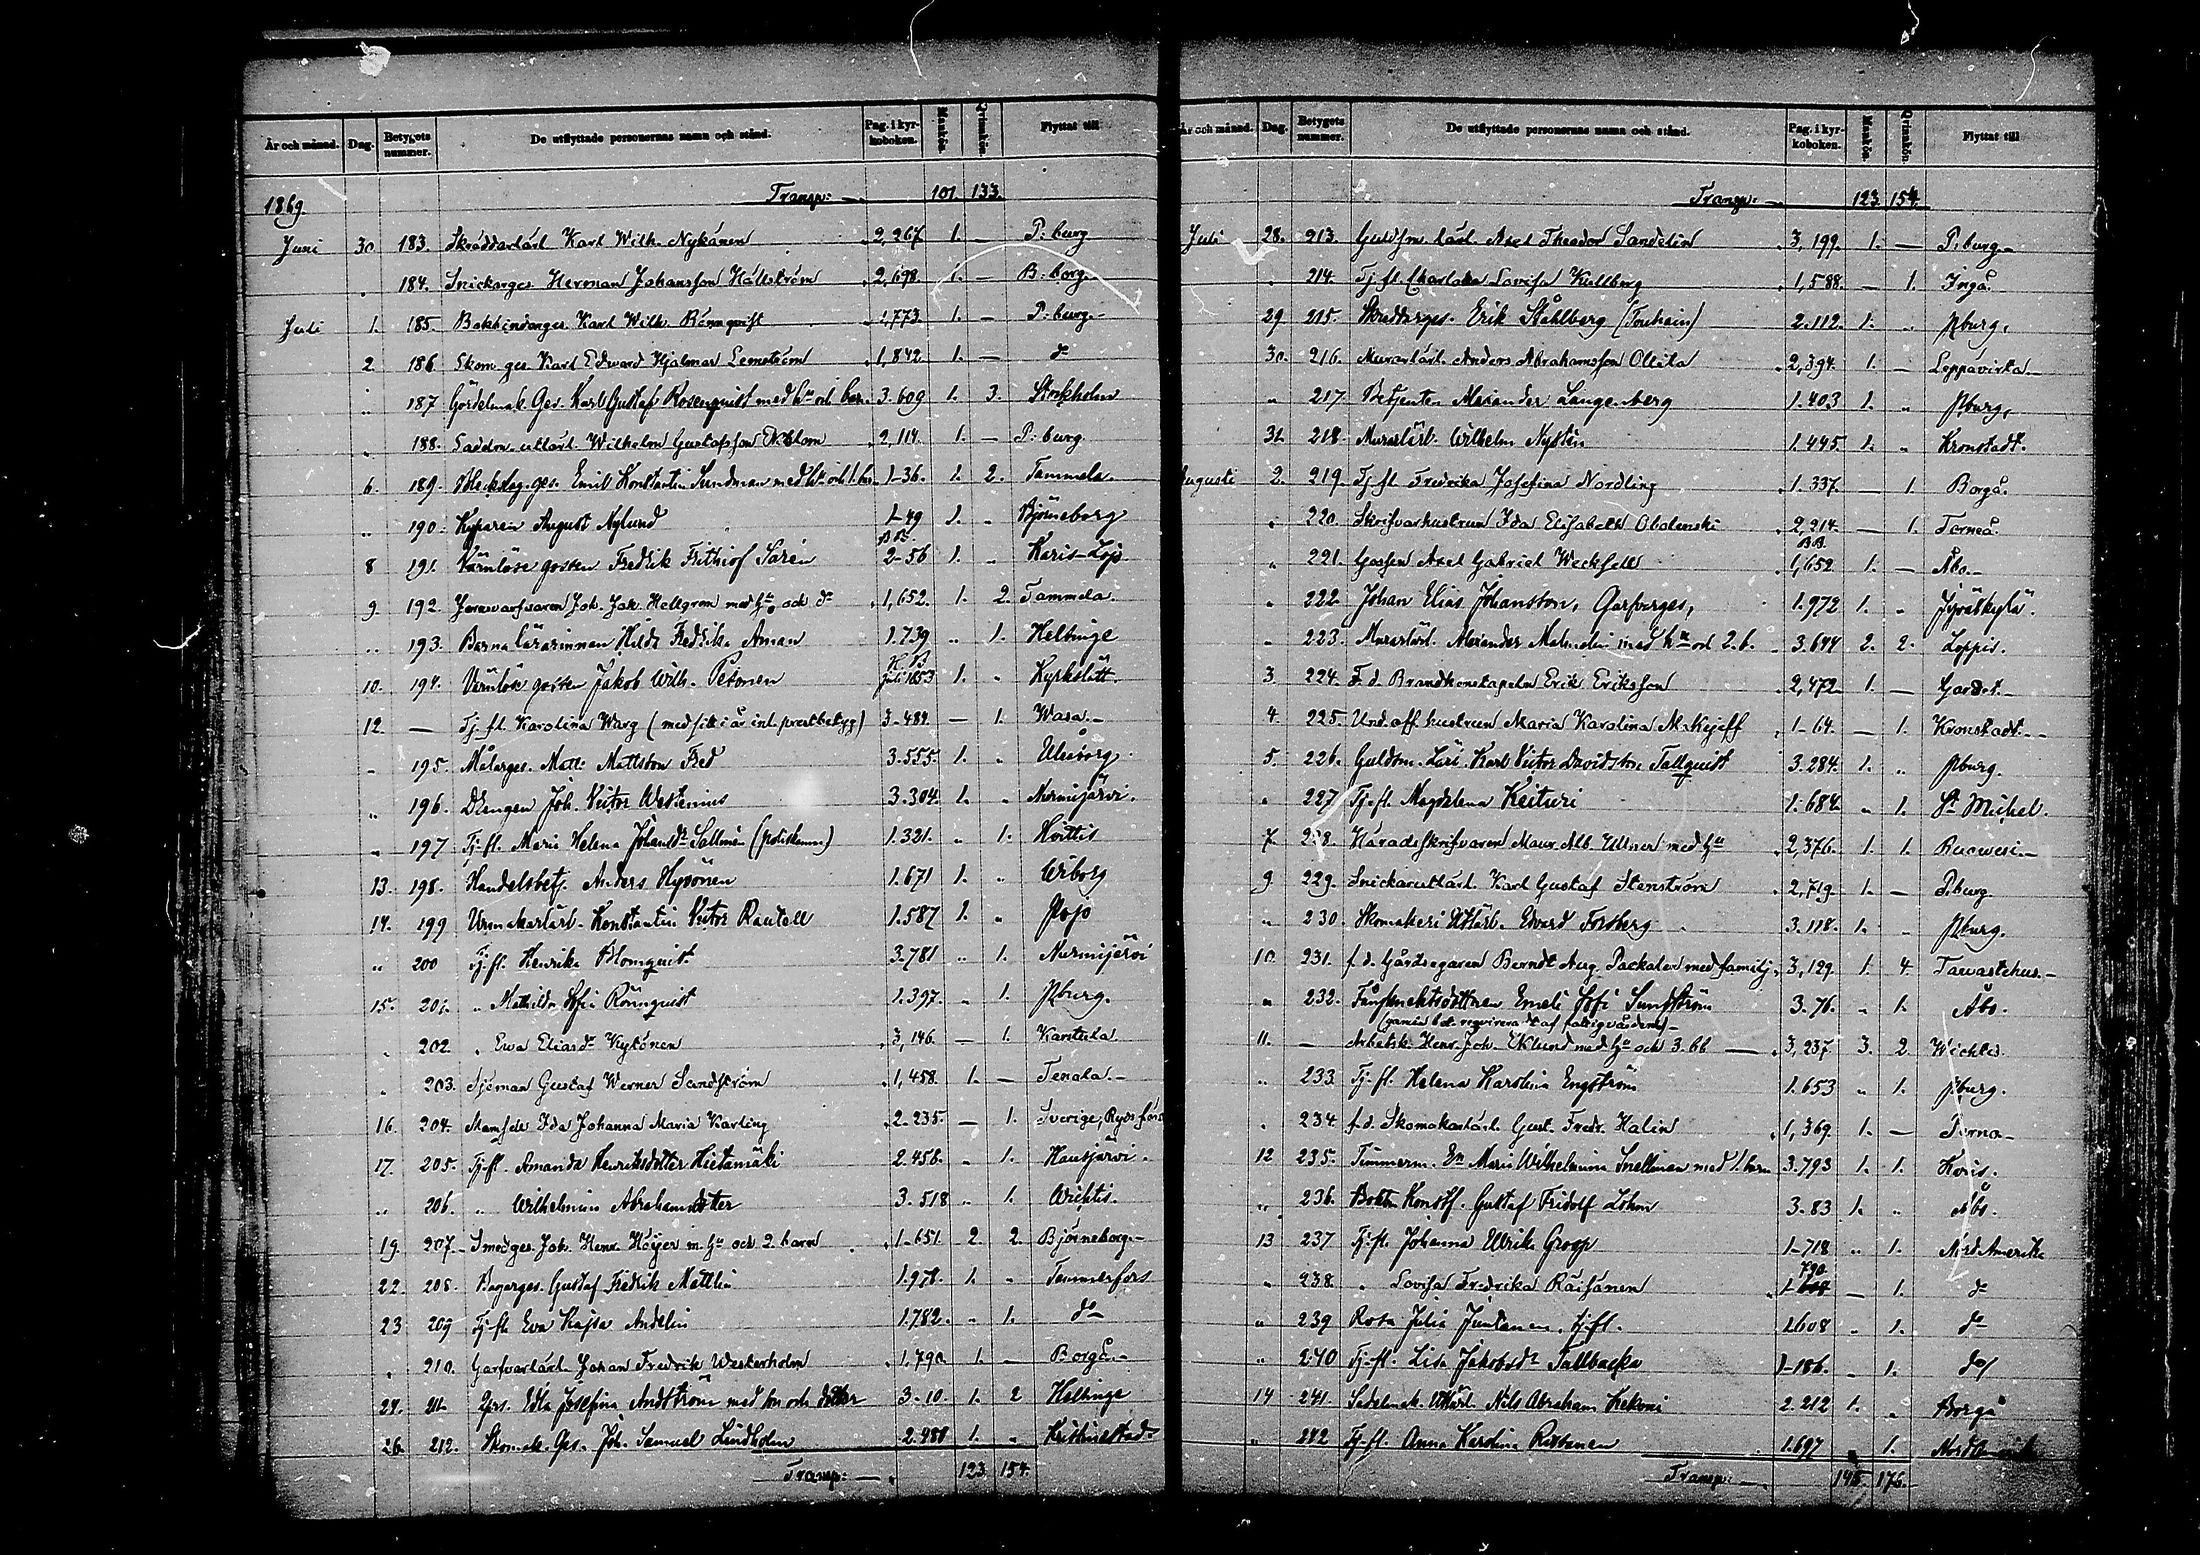 År och månad. Dag. Betygets nummer. De utflyttade personernas namn och stånd. Pag. i kyrkoboken. Mankön. Qvinkön. Flyttat till
1869. Transp: 101. 133.
Juni 30. 183. Skräddarlärl. Karl Wilh. Nykänen 2,267. 1. — P:burg
184. Snickarges. Herman Johansson Hällström 2,698. 1. — B:borg
Juli 1. 185. Bokbindarges. Karl Wilh. Rönnqvist 1,773. 1. — P:burg.
2. 186. Skom. ges. Karl Edward Hjalmar Lemström 1,842. 1. — do
" 187 Gördelmak. Ges. Karl Gustaf Rosenquist med hu och barn 3.609 1. 3. Stockholm
188. Wilhelm Gustafsson Ekblom 2,114. 1. — P:burg
6. 189. Bleckslag. ges. Emil Konstantin Sundman med hu och 1. barn 1-36. 1. 2. Tammela.
" 190. Kyparen August Nylund 1-49 1. " Björneborg
8 191. Värnlöse gossen Fredrik Frithiof Sarén 2-56 1. " Karis-Lojo
9. 192. Joh. Jak. Hellgren med hu och dr 1,652. 1. 2. Tammela.
" 193. Barnalärarinnan Hilda Fredrika Aman 1.739 " 1. Helsinge
10. 194. Värnlöse gossen Jakob Wilh. Petonen 1. " Kyrkslätt.
12. — Tj. fl. Karolina Warg (med sitt i år inl. prestbetyg) 3-484. — 1. Wasa.
" 195. Målarges. Matts Mattsson Fred 3.555. 1. " Uleåborg.
" 196. Drengen Joh. Victor Westenius 3.304. 1. " Nurmijärvi.
" 197 Tj. fl. Maria Helena Johansdr Sallmén 1.321. " 1. Hvittis
13. 198. Handelsbetj. Anders Hyvönen 1.671 1. " Wiborg
14. 199 Urmakarlärl. Konstantin Victor Rautell 1.587 1. " Pojo
" 200 Tj. fl. Henrika Blomquist 3.781 " 1. Nurmijärvi
15. 201. " Mathilda Sofia Rönnquist 1.397. " 1. Pburg.
" 202. " Ewa Eliasdr Kytönen 3,146. — 1. Karstula
" 203. Sjöman Gustaf Werner Sandström 1,458. 1. — Tenala.
16. 204. Mamsell Ida Johanna Maria Karling 2-235. — 1. Sverige, Rydsfors
17. 205. Tj. fl. Amanda Henriksdotter Hietamäki 2.458. " 1. Hausjärvi.
" 206. " Wilhelmina Abrahamsdotter 3.518 " 1. Wichtis.
19. 207. Smedges. Joh. Henr. Höijer m. hu och 2. barn 1-651. 2. 2. Björneborg.
22. 208. Bagarges. Gustaf Fredrik Mattlin 1.978. 1. " Tammerfors
23 209 Tj. fl. Eva Kajsa Andelin 1.782. " 1. do
" 210. Garfvarlärl. Johan Fredrik Westerholm 1,790. 1. — Borgå.
24. 211. Edla Josefina Andström med son och dotter 3-10. 1. 2 Helsinge
26. 212. Skomak. Ges. Joh. Samuel Lindholm 2.488 1. " Kristinestad
Transp: 123. 154.
År och månad. Dag. Betygets nummer. De utflyttade personernas namn och stånd. Pag. i kyrkoboken. Mankön. Qvinkön. Flyttat till
Transp: 123. 154.
Juli 28. 213. Guldsm. lärl. Axel Theodor Sandelin 3,199. 1. — P:burg
" 214. Tj. fl. Charlotta Lovisa Kullberg 1,588. — 1. Ingå.
29 215. Skreddarges. Erik Ståhlberg 2.112. 1. " Pburg.
30. 216. Murarlärl. Anders Abrahamsson Ollila 2,394. 1. — Leppävirta
" 217 Betjenten Alexander Langenberg 1.403 1. " Pburg.
31. 218. Murarlärl. Wilhelm Nystén 1.445. 1. " Kronstadt.
Augusti 2. 219. Tj. fl. Fredrika Josefina Nordling 1.337. — 1. Borgå.
" 220. Skrifvarhustrun Ida Elisabeth Obolenski 2,214. — 1. Torneå.
" 221. Gossen Axel Gabriel Wecksell 1,652. 1. — Åbo.
" 222. Johan Elias Johansson, Garfvarges, 1.972 1. " Jyväskylä.
" 223. Murarlärl. Alexander Malmelin med hu och 2. b. 3.644 2. 2. Loppis.
3. 224. F. d. Brandkonstapeln Erik Eriksson 2,472. 1. —
4. 225. Und. off. hustrun Maria Karolina Makejeff 1-64. — 1. Kronstadt.
5. 226. Guldsm. Lärl. Karl Victor Davidsson Tallquist 3.284. 1. " Pburg.
" 227. Tj. fl. Magdalena Keituri 1.684. " 1. St Michel.
7. 228. Häradsskrifvaren Maur. Alb. Ullner med hu 2,376. 1. 1. Ruowesi.
9. 229. Snickarlärl. Karl Gustaf Stenström 2,719. 1. — P:burg
" 230. Skomakeri Utlärl. Edvard Forsberg 3.118. 1. " Pburg.
10. 231. f. d. Gårdsegaren Berndt Aug. Packalen med familj 3,129. 1. 4. Tawastehus.
" 232. Emeli Sofi Sundström 3-76. " 1. Åbo.
11. — Arbetsk. Henr. Joh. Eklund med hu och 3. bb 3,237. 3. 2. Wichtis.
" 233 Tj. fl. Helena Karolina Engström 1.653 " 1. Pburg.
" 234. f. d. Skomakarlärl. Gust. Fredr. Halin 1,369. 1. — Perno
12 235. Timmerm. En. Maria Wilhelmina Snellman med 1. barn 3.793 1. 1. Karis.
" 236. Gustaf Fridolf Löhm 3-83 1. " Åbo.
13 237 Tj. fl. Johanna Ulrika Groop 1-718 " 1. Nord Amerika
" 238. " Lovisa Fredrika Räisänen 790 — 1. do
" 239 Rosa Julia Juntanen, tj. fl. 1.608 " 1. do
" 240 Tj. fl. Lisa Jakobsdr Tallbacka 1-186. " 1. do
14 241. Sadelmak. Utlärl. Nils Abraham Kekoni 2.212 1. " Borgå
" 242 Tj. fl. Anna Karolina Ristonen 1.697 " 1.
Transp: 145. 176.